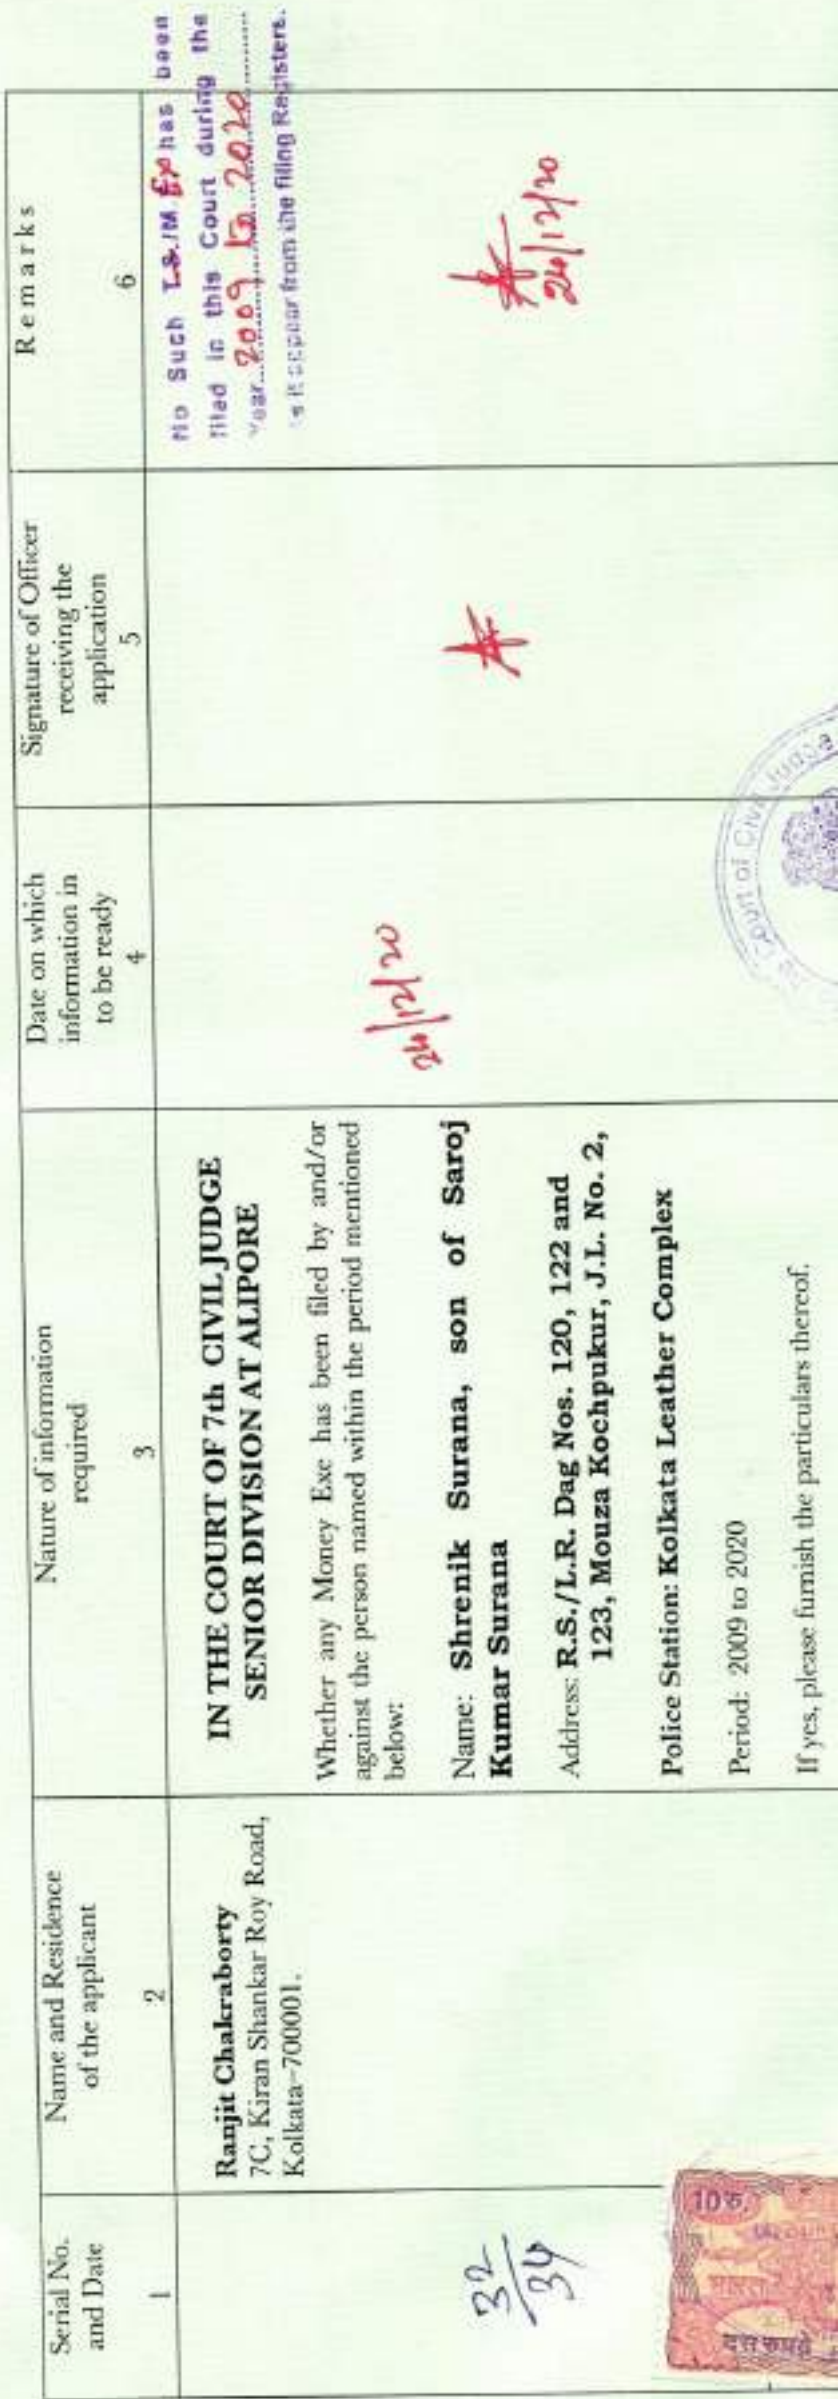 Serial No.
and Date
1
Name and Residence
of the applicant
2
Nature of information
required
3
Date on which
information in
to be ready
4
Signature of Officer
receiving the
application
5
Remarks
6
32
34
Ranjit Chakraborty
7C, Kiran Shankar Roy Road,
Kolkata-700001.
IN THE COURT OF 7th CIVIL JUDGE
SENIOR DIVISION AT ALIPORE
Whether any Money Exe has been filed by and/or
against the person named within the period mentioned
below:
Name: Shrenik Surana, son of Saroj
Kumar Surana
Address: R.S./L.R. Dag Nos. 120, 122 and
123, Mouza Kochpukur, J.L. No. 2,
Police Station: Kolkata Leather Complex
Period: 2009 to 2020
If yes, please furnish the particulars thereof.
24/12/20
No Such T.S./M. Ex has been
filed in this Court during the
Year 2009 to 2020
as it appear from the filing Registers.
24/12/20
Court of Civil Judge
10 रु.
भारत
दस रुपये